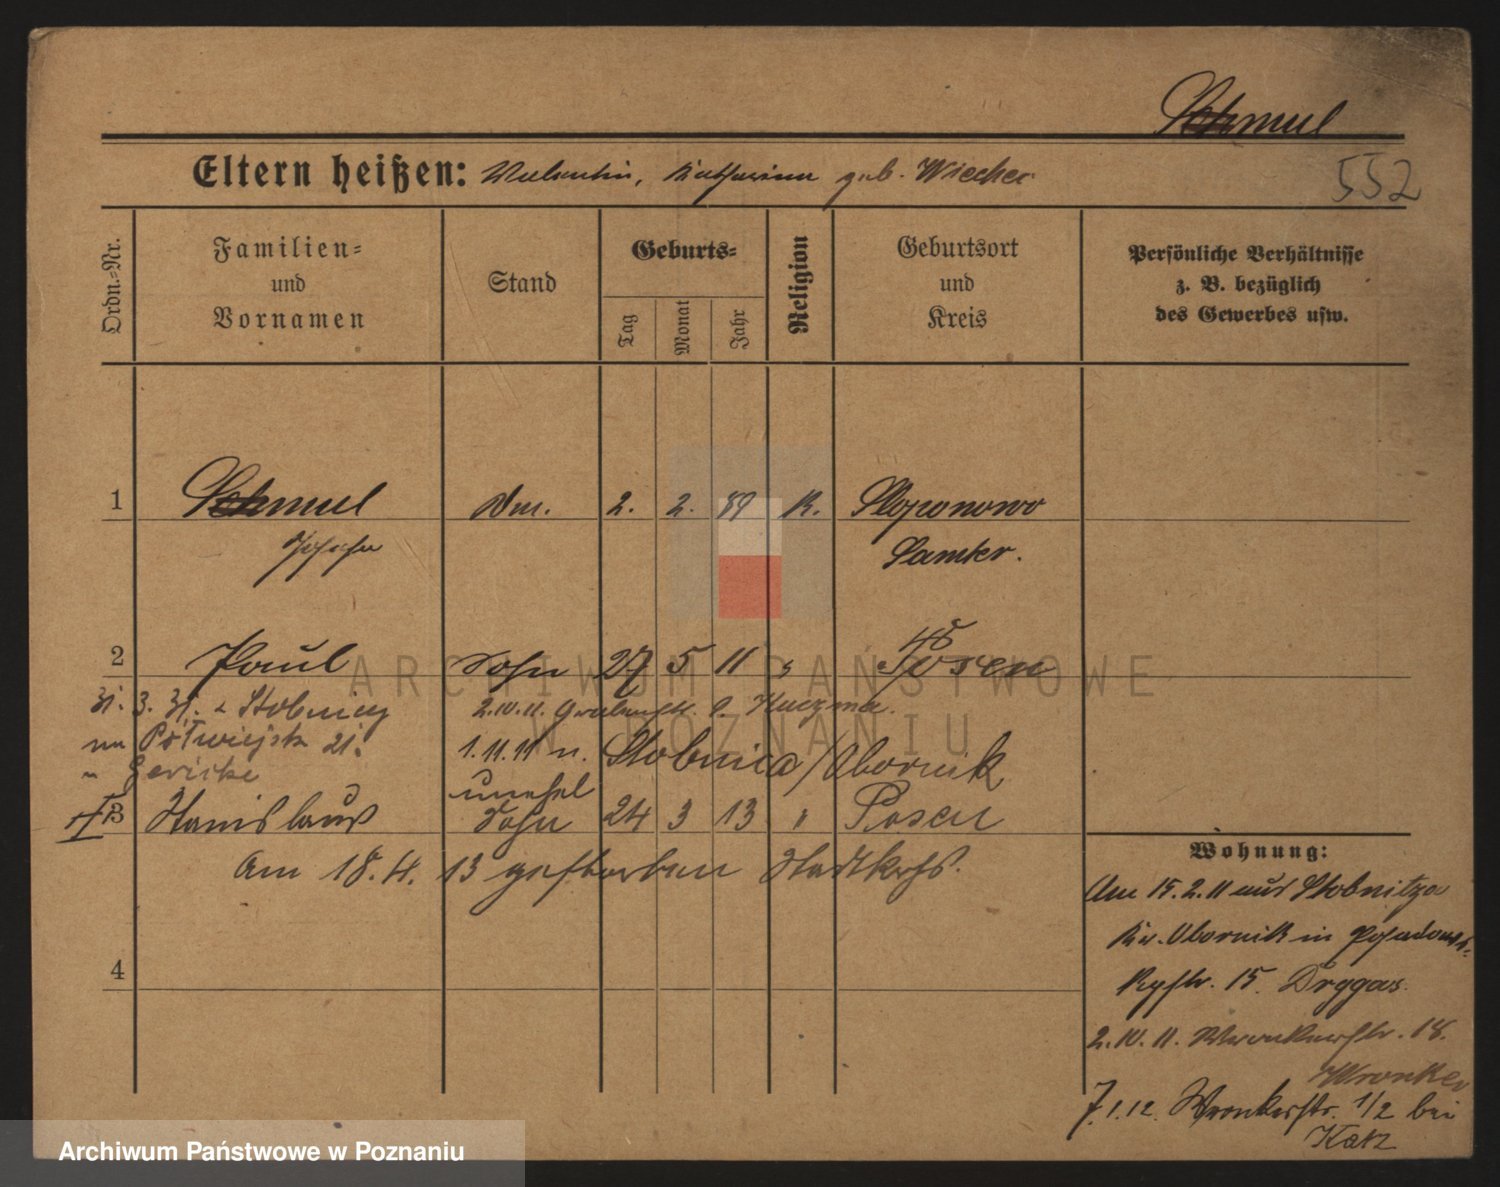 Schmul
Eltern heißen: Valentin, Katharina geb. Wiecher
552
Ordn.=Nr.
Familien=
und
Vornamen
Stand
Geburts=
Tag
Monat
Jahr
Religion
Geburtsort
und
Kreis
Persönliche Verhältnisse
z. B. bezüglich
des Gewerbes usw.
1 Schmul 2. 2. 89 K. Slopanowo
Josefa Samter.
2 Paul Sohn 27 5 11 " Posen
31. 3. 31. Stobnicy
2.10.11. Grabenstr. 9. Kaczmar.
na Półwiejsk 21.
Gericke
1.11.11 n. Stobnica/Obornik
unehel
3 Stanislaus Sohn 24 3 13 " Posen
Am 18.4.13 gestorben Stadtkrhs.
4
Wohnung:
Am 15.2.11 aus Stobnitza
Kr. Obornik in
15. Dryggas.
2.10.11. Wronkerstr. 18.
Wronker
7.1.12. Wronkerstr. 1/2 bei
Katz
ARCHIWUM PAŃSTWOWE
W POZNANIU
Archiwum Państwowe w Poznaniu